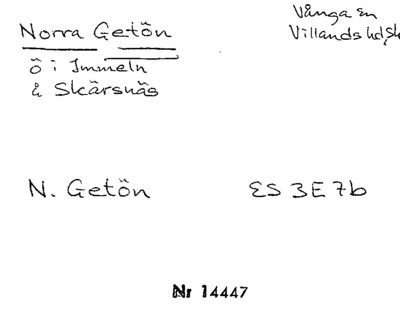 Norra Getön
ö i Immeln
å Skärsnäs
Vånga sn
Villands hd, Sk
N. Getön
ES 3E7b
Nr 14447